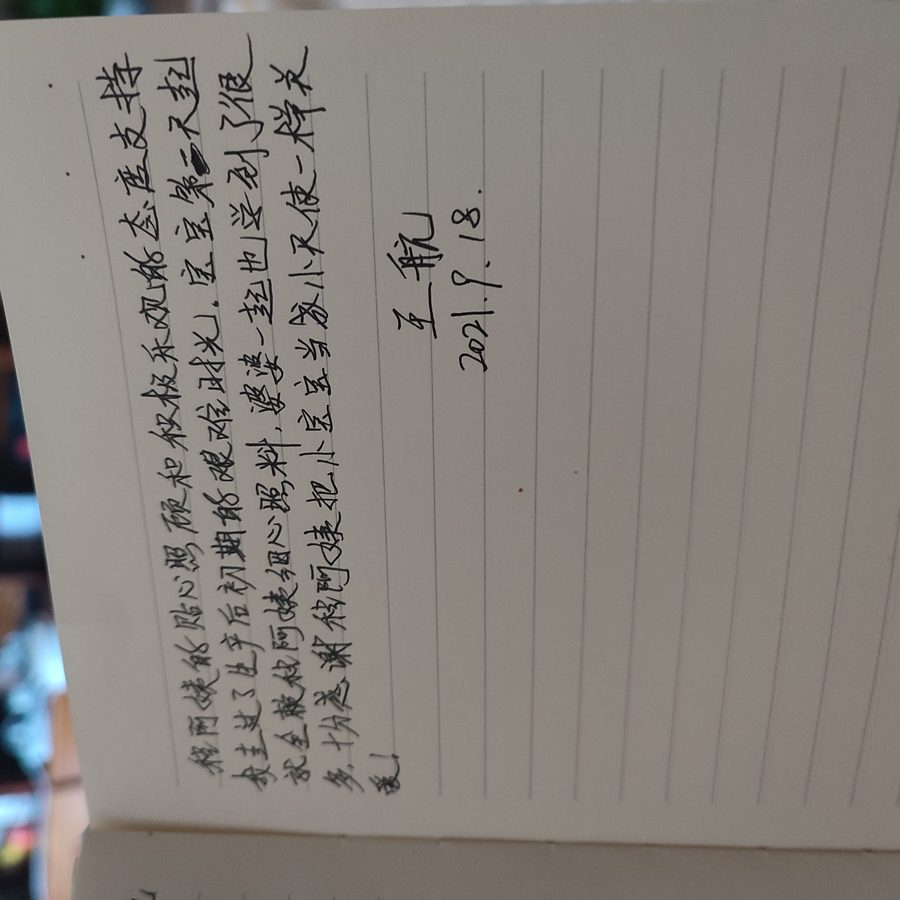 阿姨的贴心照顾和积极乐观的态度支持
我走过了生产后初期的艰难时光.宝宝第一天起
就全被阿姨细心照料,婆婆一起也学到了很
多.十分感谢阿姨把小宝宝当成小天使一样关
爱!
王航
2021.9.18.